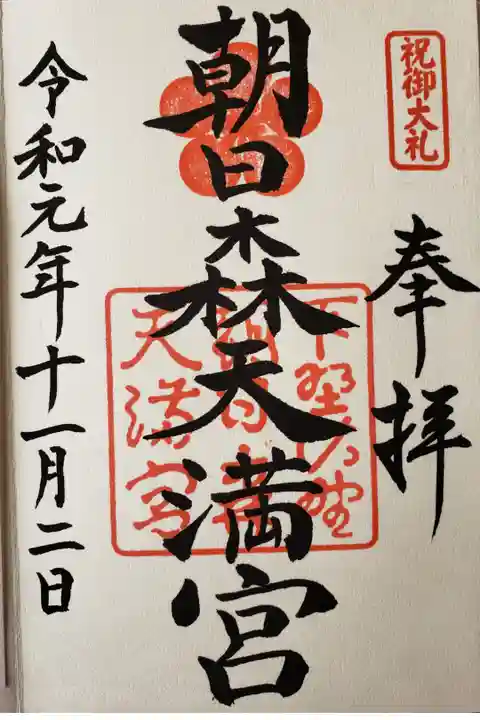 祝御大礼
奉拝
朝日森天満宮
下野佐野
朝日森
天満宮
令和元年十一月二日